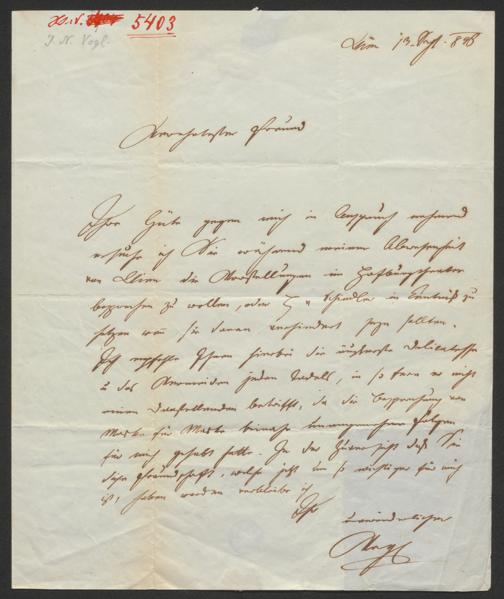 H.I.N. 5403
J. N. Vogl.
Wien 13. Sept. 846
Verehrtester Freund
Ihre Güte gegen mich in Anspruch nehmend
ersuche ich Sie während meiner Abwesenheit
von Wien die Vorstellungen im Hofburgtheater
besprechen zu wollen, oder H. Schindler in Kenntniß zu
setzen wenn Sie daran verhindert seyn sollten.
Ich empfehle Ihnen hierbei die äußerste Delicatesse
u das Vermeiden jeden Tadels, in so fern er nicht
einen Darstellenden betrifft, da die Besprechung von
für mich gehabt hatte. In der Zuversicht daß Sie
diese Freundschaft, welche jetzt um so wichtiger für mich
ist, haben werden verbleibe ich
Ihr
unveränderlicher
Vogl